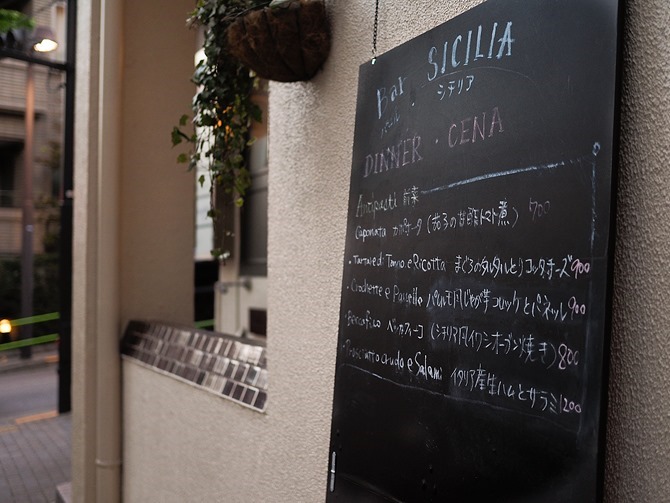 Bar SICILIA
バール シチリア
DINNER・CENA
Antipasti 前菜
Caponata カポナータ (茄子の甘酢トマト煮) 700
・Tartare di Tonno e Ricotta まぐろのタルタルとリコッタチーズ 900
・Crochette e Panelle パレルモ風じゃが芋コロッケとパネッレ 900
・Beccafico ベッカフィーコ (シチリア風イワシオーブン焼き) 800
・Prosciutto crudo e Salami イタリア産生ハムとサラミ 1200